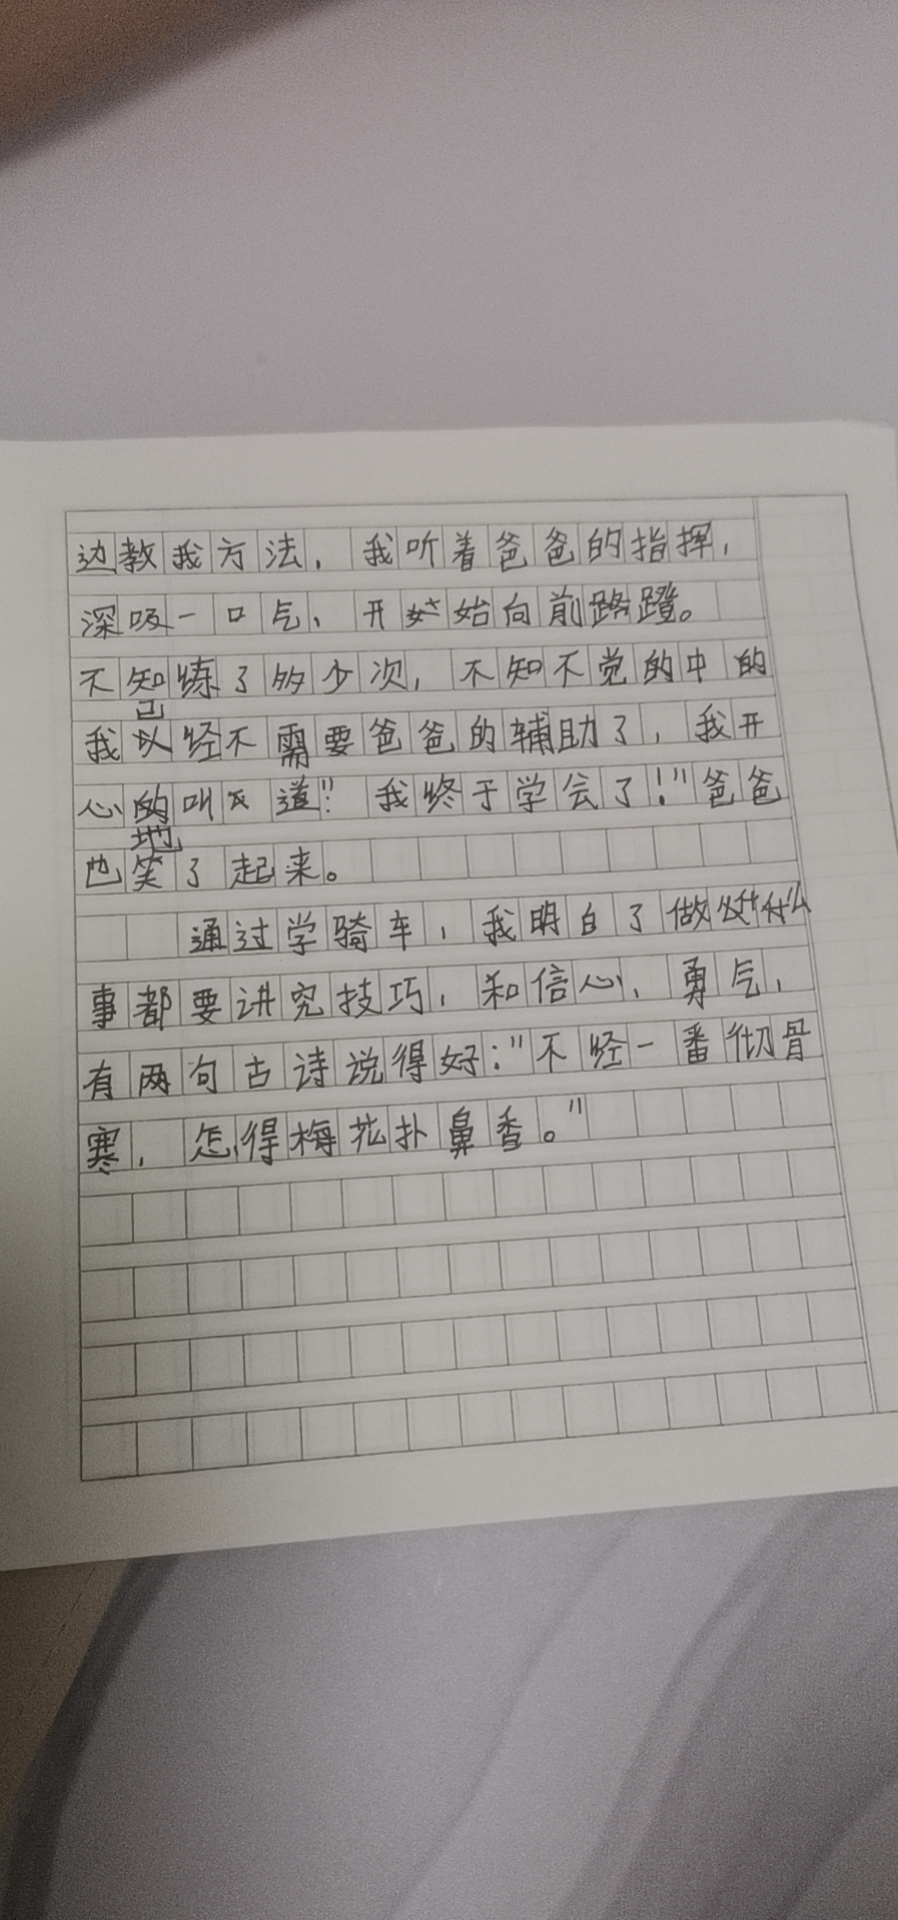 边教我方法，我听着爸爸的指挥，
深吸一口气，开始向前路蹬。
不知练了多少次，不知不觉的中的
已
我以经不需要爸爸的辅助了，我开
心的叫道"！我终于学会了！"爸爸
地
也笑了起来。
通过学骑车，我明白了做什么
事都要讲究技巧，和信心，勇气，
有两句古诗说得好："不经一番彻骨
寒，怎得梅花扑鼻香。"